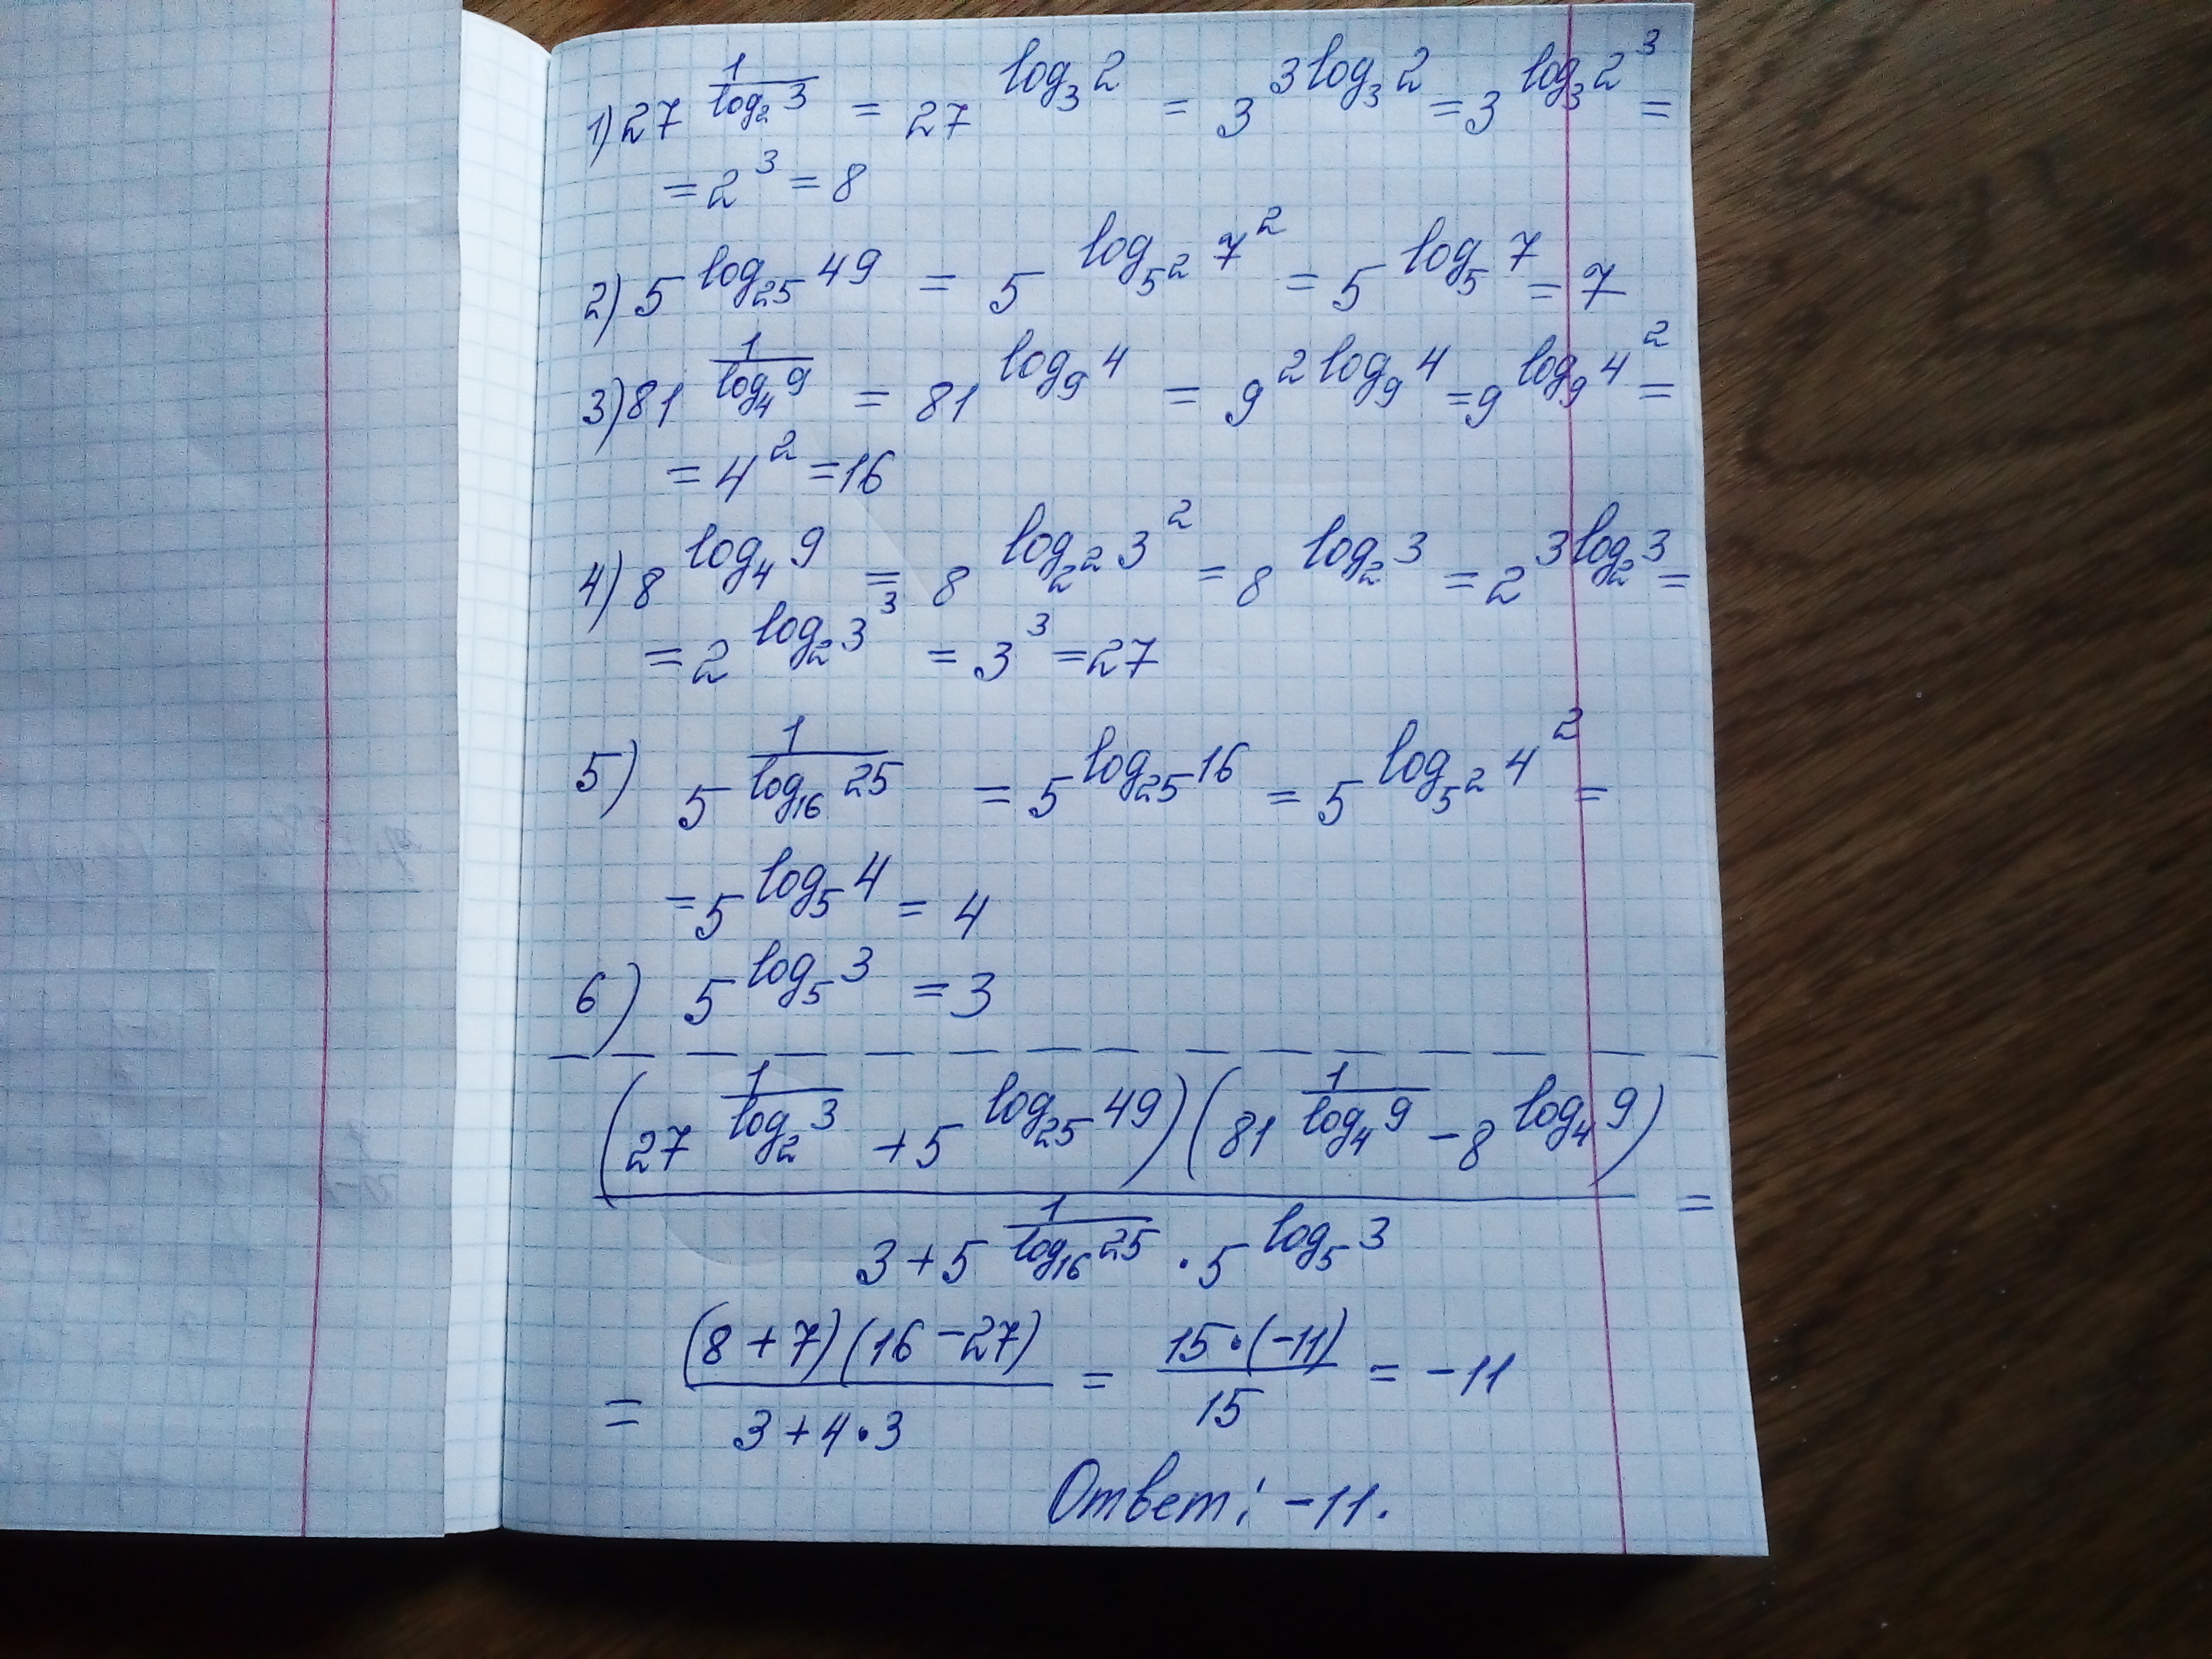 1) 27^(1/log₂3) = 27^(log₃2) = 3^(3log₃2) = 3^(log₃2³) =
= 2³ = 8
2) 5^(log₂₅49) = 5^(log_(5²)7²) = 5^(log₅7) = 7
3) 81^(1/log₄9) = 81^(log₉4) = 9^(2log₉4) = 9^(log₉4²) =
= 4² = 16
4) 8^(log₄9) = 8^(log_(2²)3²) = 8^(log₂3) = 2^(3log₂3) =
= 2^(log₂3³) = 3³ = 27
5) 5^(1/log₁₆25) = 5^(log₂₅16) = 5^(log_(5²)4²) =
= 5^(log₅4) = 4
6) 5^(log₅3) = 3
(27^(1/log₂3) + 5^(log₂₅49))(81^(1/log₄9) - 8^(log₄9)) / (3 + 5^(1/log₁₆25) · 5^(log₅3)) =
= (8 + 7)(16 - 27) / (3 + 4 · 3) = 15 · (-11) / 15 = -11
Ответ: -11.